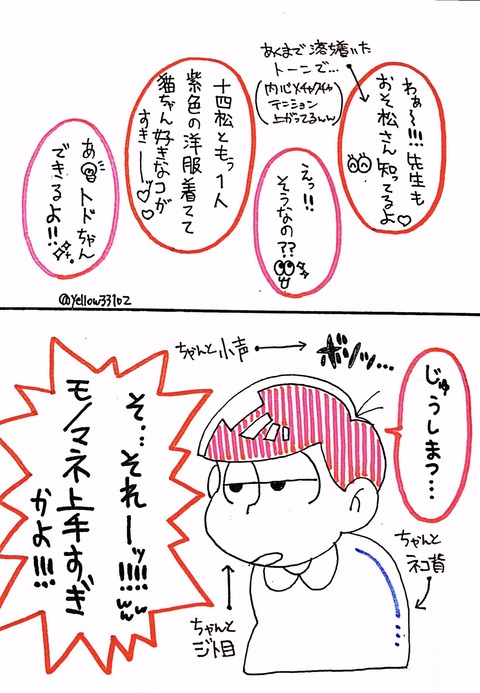 わぁ〜!!!! 先生も
おそ松さん知ってるよ♡
あくまで落ち着いた
トーンで…
(内心メチャクチャ
テンション
上がってるんん)
えっ!!
そうなの??
十四松ともう1人
紫色の洋服着てて
猫ちゃん好きなコが
すきーーッ♡♡
あ トドちゃん
できるよ!!
@yellow33102
じゅうしまつ…
ちゃんと小声
ボソッ…
ちゃんと
ネコ背
ちゃんと
ジト目
そ…それーッ!!!!ww
モノマネ上手すぎ
かよ!!!